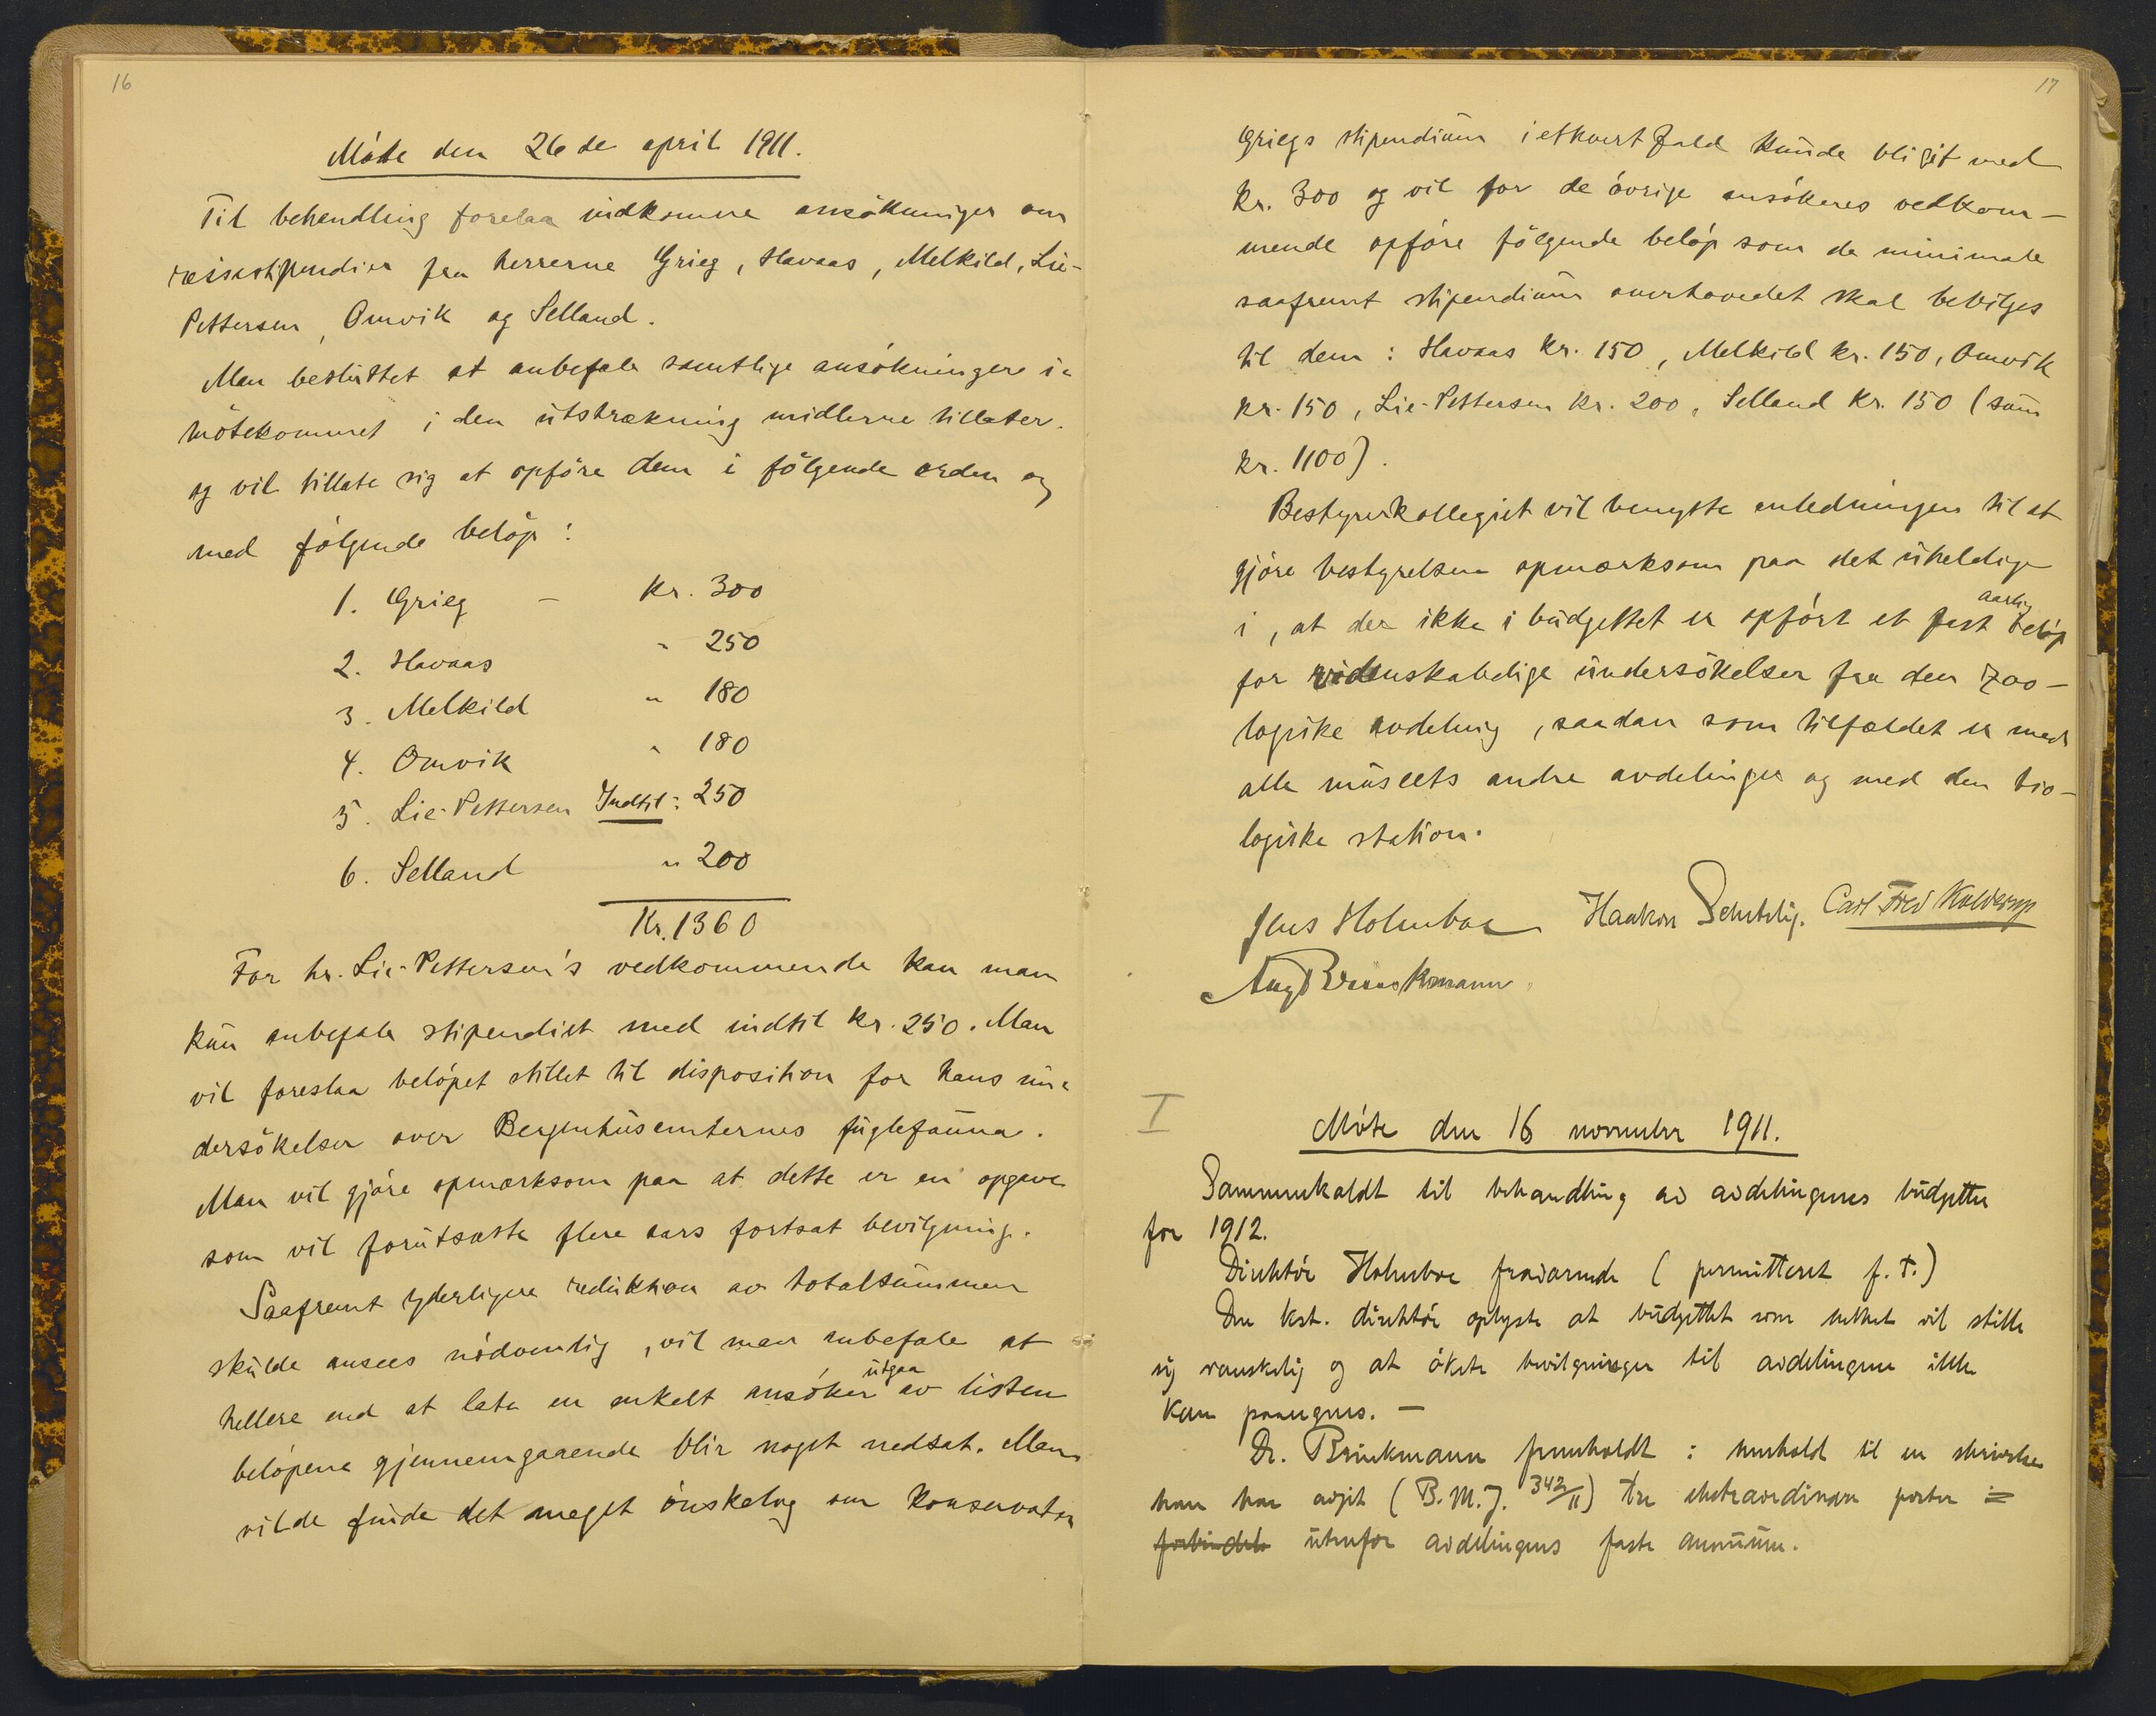 16
Möte den 26de april 1911.
Til behandling forelaa indkomne ansökninger om
reisestipendier fra herrerne Grieg, Havaas, Melkild, Lie-
Pettersen, Omvik og Selland.
Man besluttet at anbefale samtlige ansökninger i-
mötekommet i den utstrækning midlerne tillater.
og vil tillate sig at opföre dem i fölgende orden og
med fölgende belöp:
1. Grieg – kr. 300
2. Havaas " 250
3. Melkild " 180
4. Omvik " 180
5. Lie-Pettersen Indtil: 250
6. Selland " 200
Kr. 1360
For hr. Lie-Pettersen's vedkommende kan man
kun anbefale stipendiet med indtil kr. 250. Man
vil foreslaa belöpet stillet til disposition for hans un-
dersökelser over Bergenhusamternes fuglefauna.
Man vil gjöre opmærksom paa at dette er en opgave
som vil forutsætte flere aars fortsat bevilgning.
Saafremt yderligere reduktion av totalsummen
skulde ansees nödvendig, vil man anbefale at
hellere end at lata en enkelt ansöker utgaa av listen
belöpene gjennemgaaende blir noget nedsat. Man
vilde finde det meget önskelig om konservator
17
Griegs stipendium i ethvert fald kunde bli git med
kr. 300 og vil for de övrige ansökeres vedkom-
mende opföre fölgende belöp som de minimale
saafremt stipendium overhovedet skal bevilges
til dem: Havaas kr. 150, Melkild kr. 150, Omvik
kr. 150, Lie-Pettersen kr. 200, Selland kr. 150 (sum
kr. 1100).
Bestyrerkollegiet vil benytte anledningen til at
gjöre bestyrelsen opmærksom paa det uheldige
i, at der ikke i budgettet er opfört et fast aarlig belöp
for videnskabelige undersökelser fra den zoo-
logiske avdeling, saadan som tilfældet er med
alle museets andre avdelinger og med den bio-
logiske station.
Jens Holmboe Haakon Schetelig. Carl Fred Kolderup
Aug Brinkmann
I
Möte den 16 november 1911.
Sammenkaldt til behandling av avdelingenes budgetter
for 1912.
Direktör Holmboe fraværende (permitteret f. T.)
Den kst. direktör oplyste at budgettet som helhet vil stille
sig vanskelig og at ökete bevilgninger til avdelingene ikke
kan paaregnes. –
Dr. Brinkmann fremholdt i henhold til en skrivelse
han har avgit (B. M. J. 342/11) tre ekstraordinære poster i
forbindels utenfor avdelingens faste annuum.